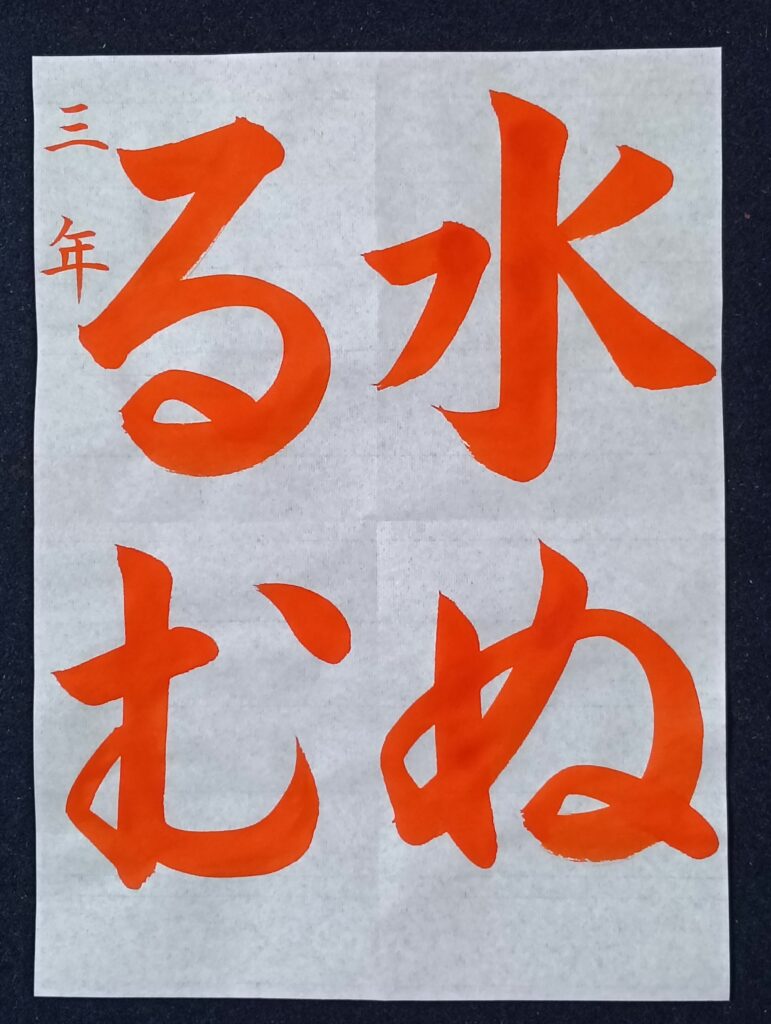 水ぬ
るむ
三年